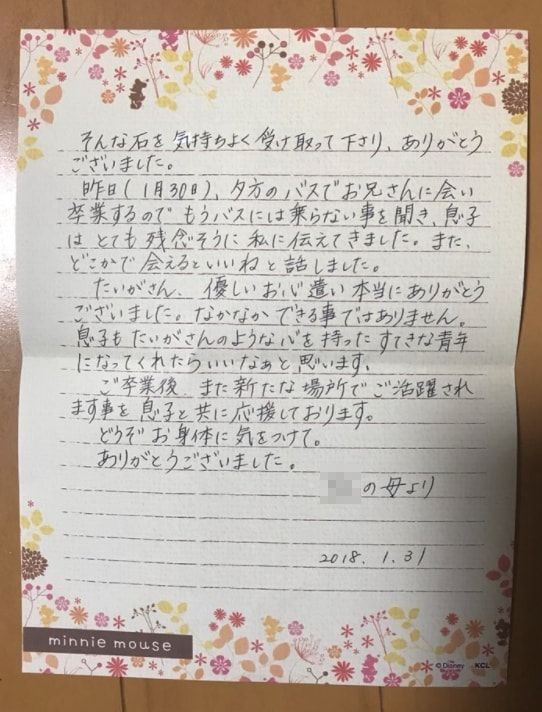 そんな石を気持ちよく受け取って下さり、ありがとう
ございました。
昨日(1月30日)、夕方のバスでお兄さんに会い
卒業するのでもうバスには乗らない事を聞き、息子
はとても残念そうに私に伝えてきました。また、
どこかで会えるといいねと話しました。
たいがさん、優しいお心遣い本当にありがとう
ございました。なかなかできる事ではありません。
息子もたいがさんのような心を持ったすてきな青年
になってくれたらいいなぁと思います。
ご卒業後、また新たな場所でご活躍され
ます事を息子と共に応援しております。
どうぞお身体に気をつけて。
ありがとうございました。
の母より
2018.1.31
minnie mouse
©Disney
KCL